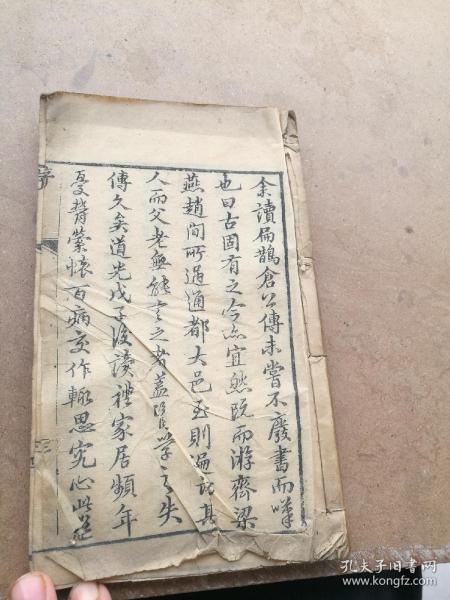 余讀扁鵲倉公傳未嘗不廢書而嘆
也曰古固有之今亦宜然既而游齊梁
燕趙間所過通都大邑至則遍訪其
人而父老無能言之者蓋醫學之失
傳久矣道光戊子後讀禮家居頻年
憂勞縈懷百病交作輒思究心此
序
孔夫子旧书网
www.kongfz.com